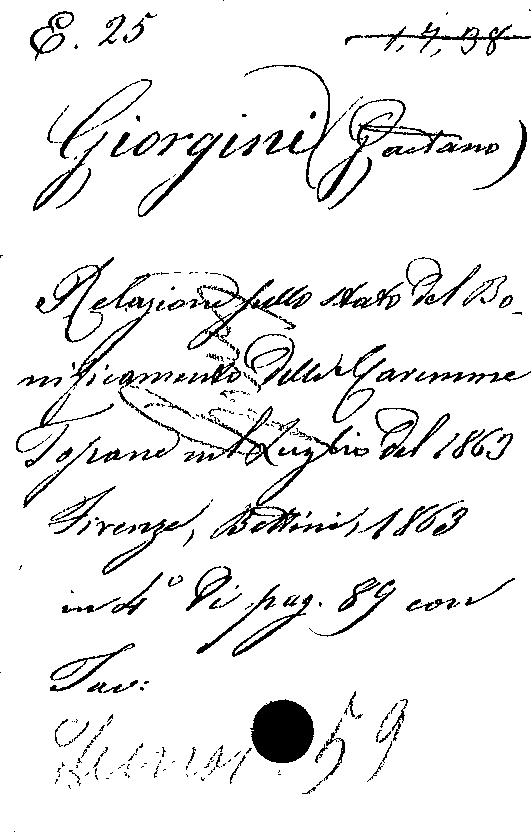 E. 25 1, 7, 38
Giorgini (Gaetano)
Relazione sullo stato del Bo-
nificamento delle Maremme
Toscane nel Luglio del 1863
Firenze, Bettini, 1863
in 4° di pag. 89 con
Tav:
59